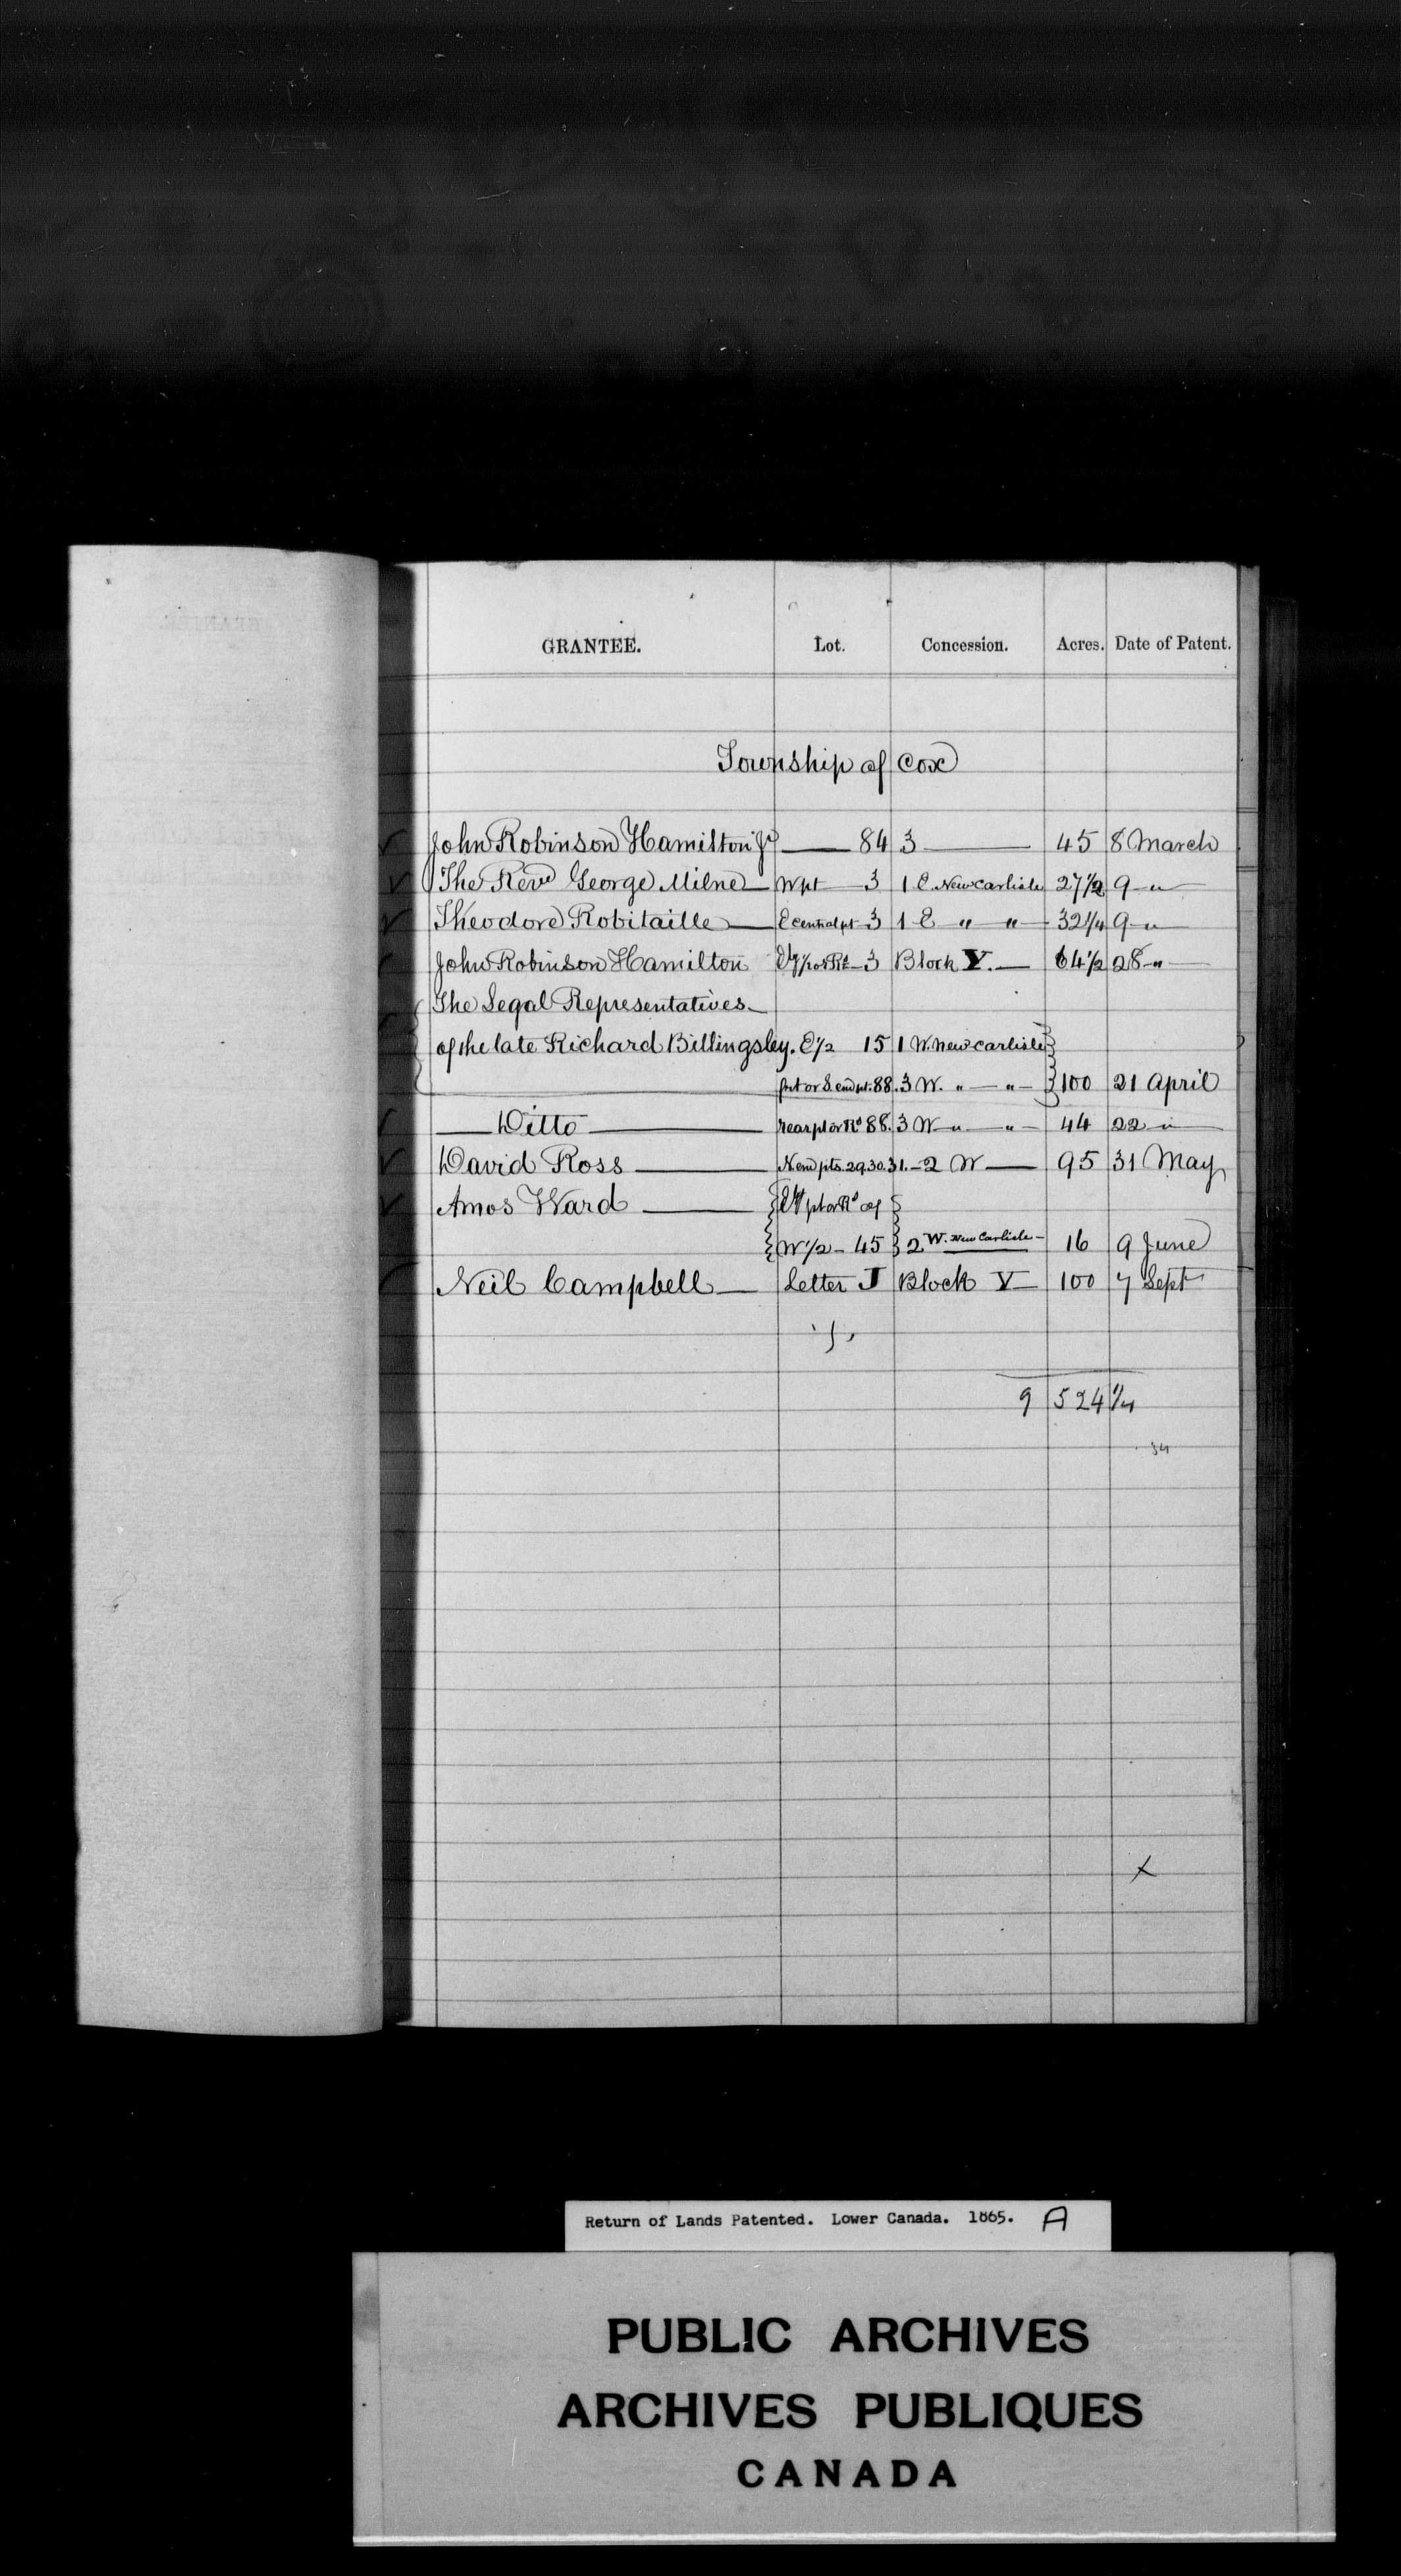 GRANTEE. Lot. Concession. Acres. Date of Patent.
Township of Cox
John Robinson Hamilton Jr — 84 3 — 45 8 March
The Revd George Milne — W pt — 3 1 E New Carlisle 27 1/2 9 — "
Theodore Robitaille — E central pt 3 1 E " " — 32 1/4 9 — "
John Robinson Hamilton — 3 Block V. — 64 1/2 28 — "
The Legal Representatives —
of the late Richard Billingsley. E 1/2 15 1 W. New Carlisle }
frt or S. end pt. 88. 3 W. " — " — } 100 21 April
— Ditto — rear pt or Rd 88. 3 W — " — " — 44 22 "
David Ross — N end pts. 29. 30. 31. — 2 W — 95 31 May
Amos Ward — { pt or Rd of }
{ W 1/2 — 45 } 2 W. New Carlisle — 16 9 June
Neil Campbell — Letter J Block V — 100 7 Sept
9 524 1/4
34
x
Return of Lands Patented. Lower Canada. 1865. A
PUBLIC ARCHIVES
ARCHIVES PUBLIQUES
CANADA